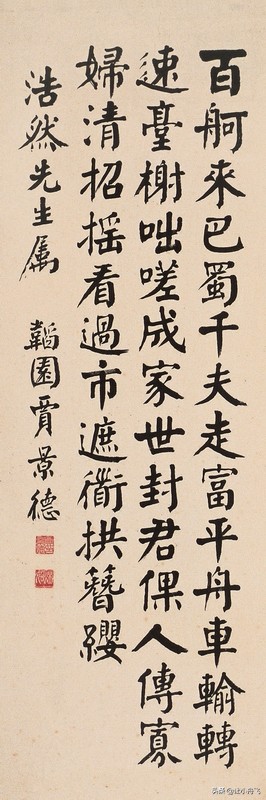 百舸來巴蜀千夫走富平舟車輸轉
速臺榭咄嗟成家世封君倮人傳寡
婦清招摇看過市遮衛拱簪纓
浩然先生属 韜園賈景德
头条